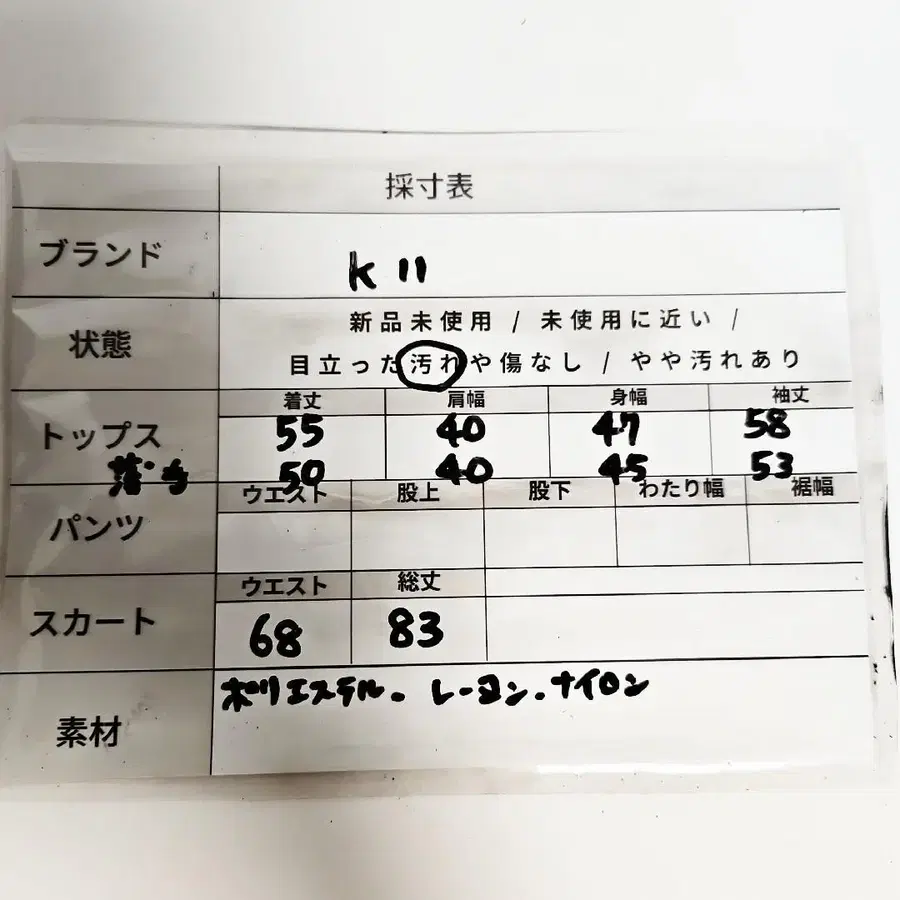 採寸表
ブランド K 11
状態 新品未使用 / 未使用に近い /
目立った汚れや傷なし / やや汚れあり
着丈 肩幅 身幅 袖丈
トップス 55 40 47 58
50 40 45 53
ウエスト 股上 股下 わたり幅 裾幅
パンツ
ウエスト 総丈
スカート 68 83
素材 ポリエステル. レーヨン. ナイロン